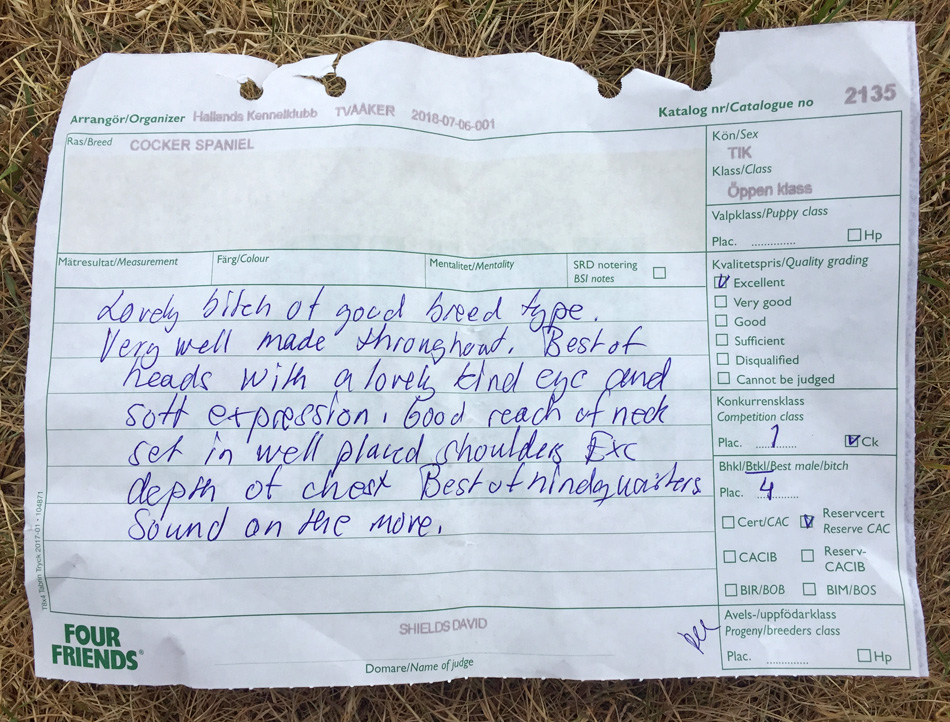 Arrangör/Organizer Hallands Kennelklubb TVAAKER 2018-07-06-001
Katalog nr/Catalogue no 2135
Ras/Breed COCKER SPANIEL
Kön/Sex
TIK
Klass/Class
Öppen klass
Valpklass/Puppy class
Plac. .............. Hp
Mätresultat/Measurement Färg/Colour Mentalitet/Mentality SRD notering
BSI notes
Kvalitetspris/Quality grading
Excellent
Very good
Good
Sufficient
Disqualified
Cannot be judged
Lovely bitch of good breed type.
Very well made throughout. Best of
heads with a lovely kind eye and
soft expression. Good reach of neck
set in well placed shoulders Exc
depth of chest Best of hindquarters
Sound on the move.
Konkurrensklass
Competition class
Plac. 1 Ck
Bhkl/Btkl/Best male/bitch
Plac. 4
Cert/CAC Reservcert
Reserve CAC
CACIB Reserv-
CACIB
BIR/BOB BIM/BOS
Avels-/uppfödarklass
Progeny/breeders class
Plac. .............. Hp
FOUR
FRIENDS®
SHIELDS DAVID
Domare/Name of judge